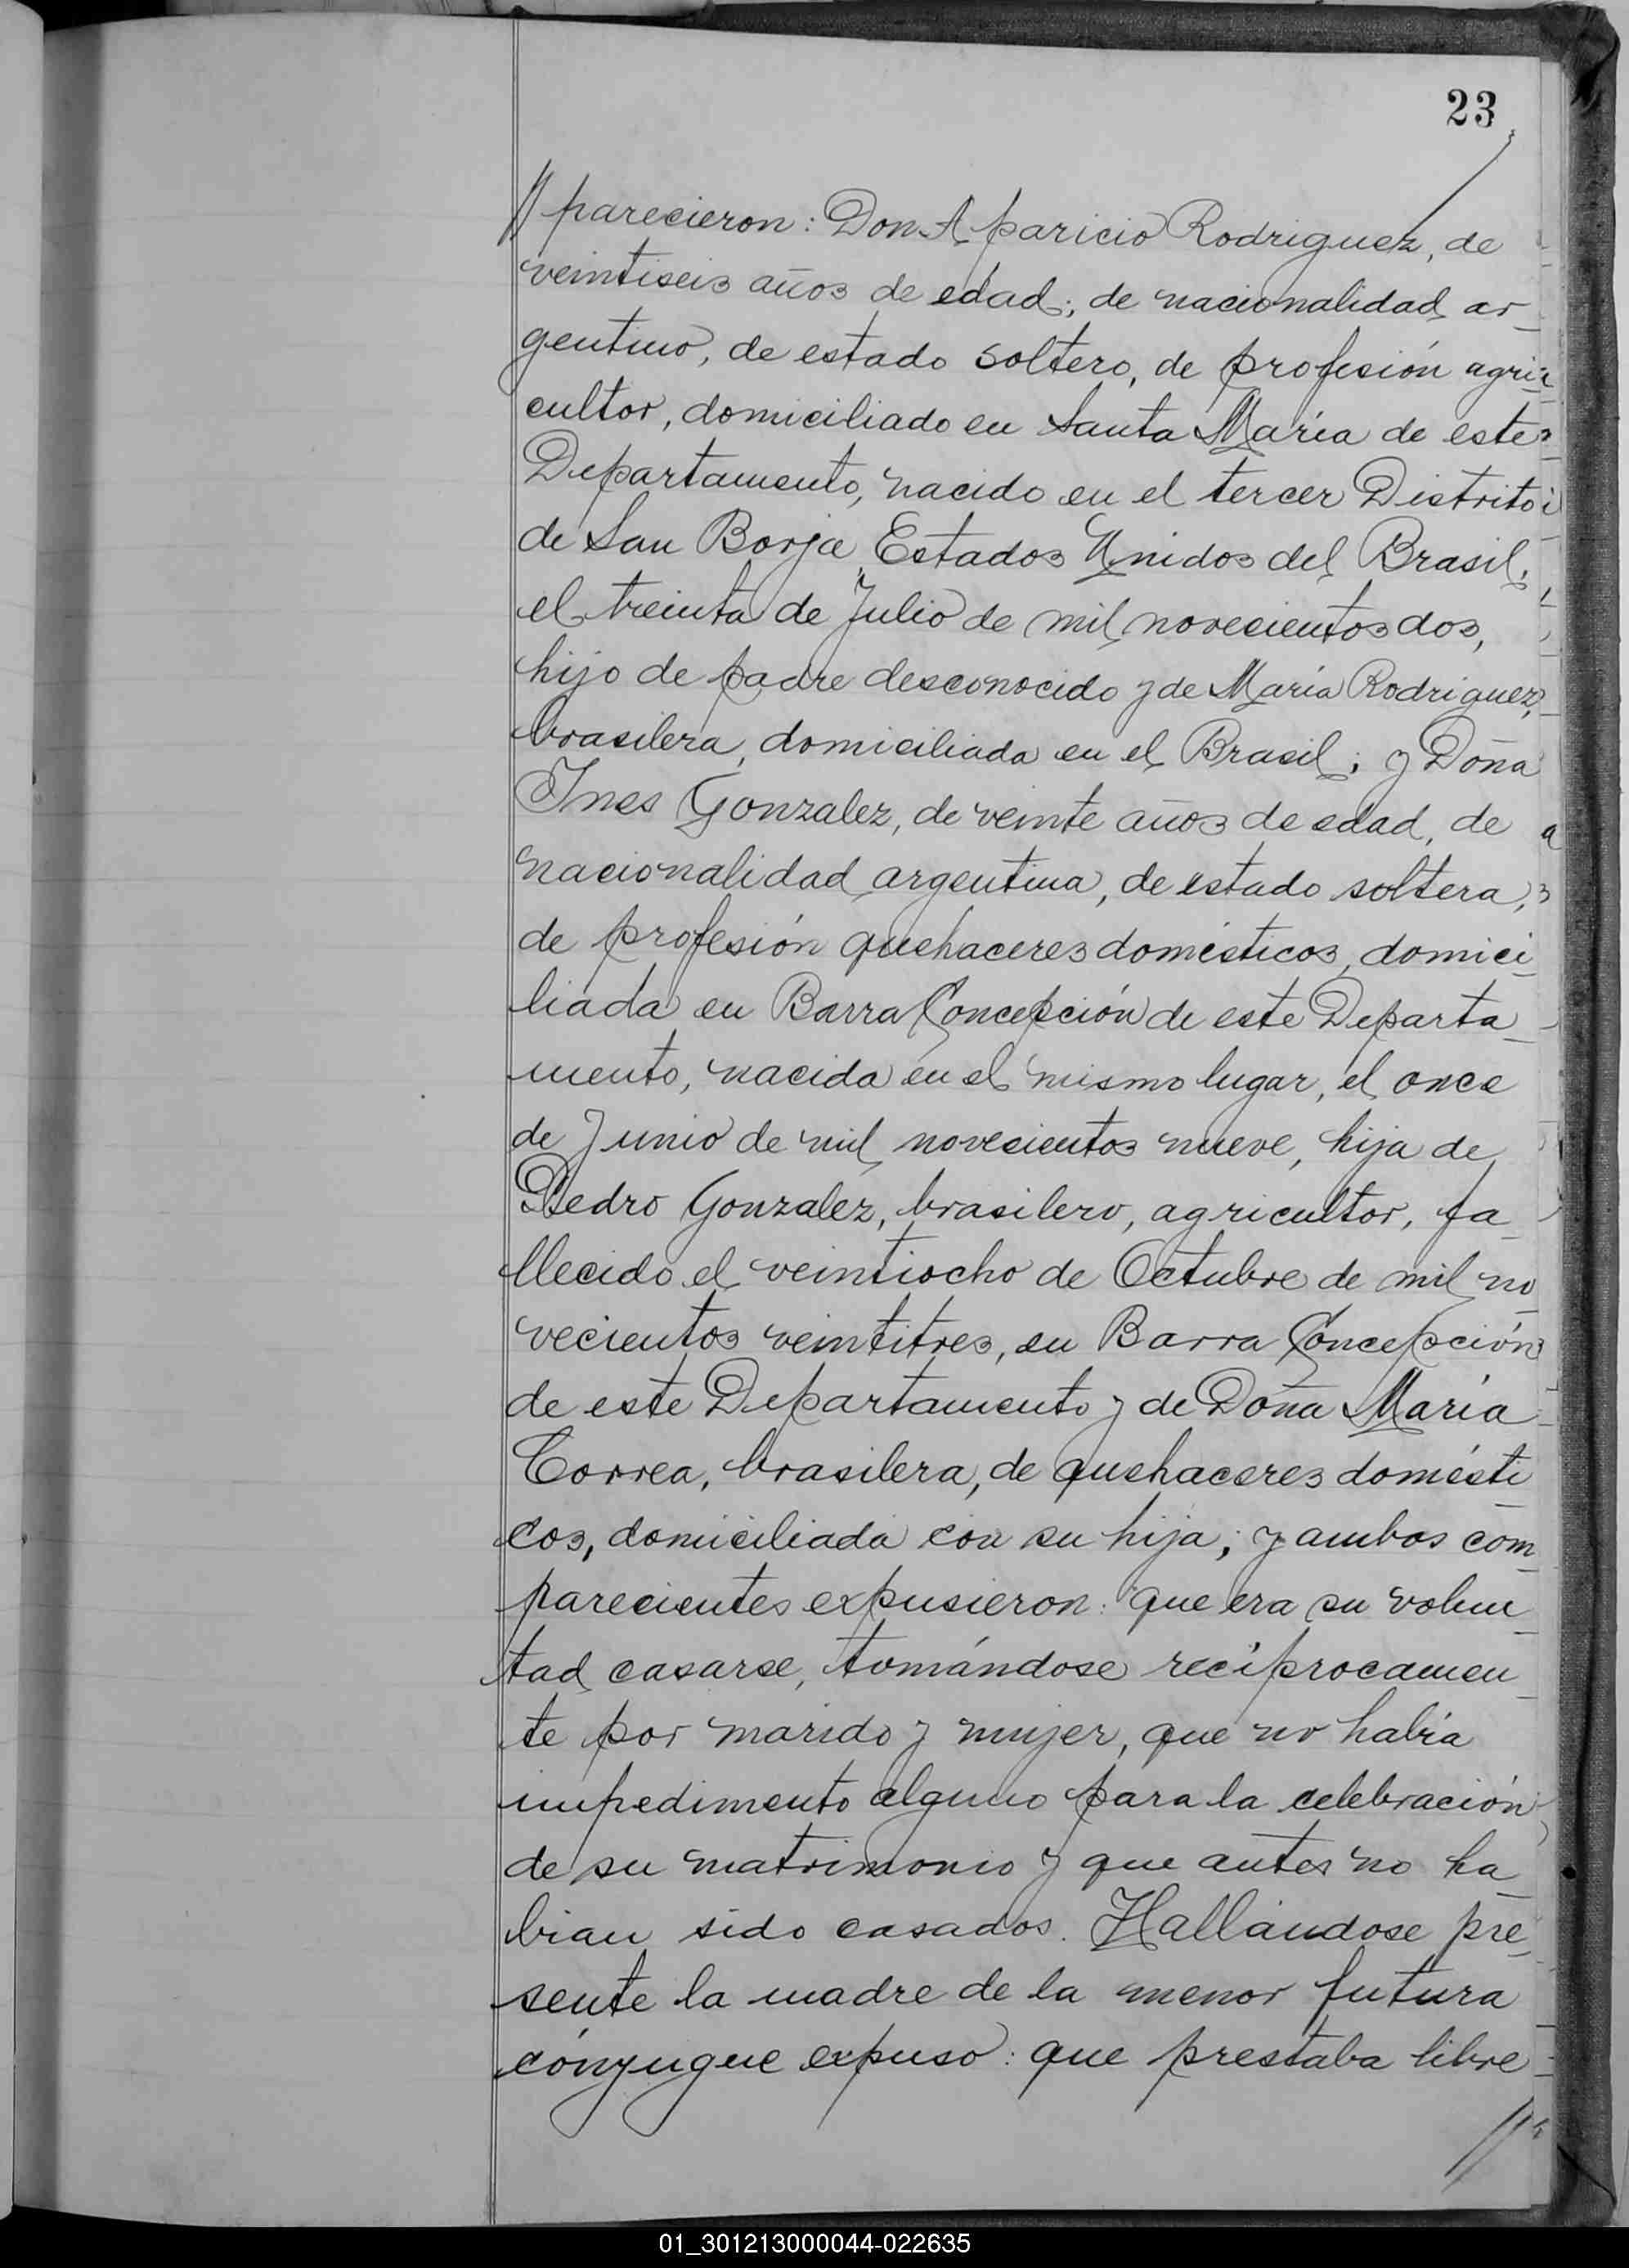 23
//parecieron: Don Aparicio Rodriguez, de
veintiseis años de edad, de nacionalidad ar-
gentino, de estado soltero, de profesión agri-
cultor, domiciliado en Santa María de este
Departamento, nacido en el tercer Distrito
de San Borja Estados Unidos del Brasil,
el treinta de Julio de mil novecientos dos,
hijo de padre desconocido y de María Rodriguez,
brasilera, domiciliada en el Brasil; y Doña
Ines Gonzalez, de veinte años de edad, de
nacionalidad argentina, de estado soltera,
de profesión quehaceres domésticos, domici-
liada en Barra Concepción de este Departa-
mento, nacida en el mismo lugar, el once
de Junio de mil novecientos nueve, hija de
Pedro Gonzalez, brasilero, agricultor, fa-
llecido el veintiocho de Octubre de mil no-
vecientos veintitres, en Barra Concepción
de este Departamento y de Doña María
Correa, brasilera, de quehaceres domésti-
cos, domiciliada con su hija; y ambos com-
parecientes expusieron: que era su volun-
tad casarse, tomándose recíprocamen-
te por marido y mujer, que no había
impedimento alguno para la celebración
de su matrimonio y que antes no ha-
bian sido casados. Hallándose pre-
sente la madre de la menor futura
cónyugue expuso: que prestaba libre
//
01_301213000044-022635